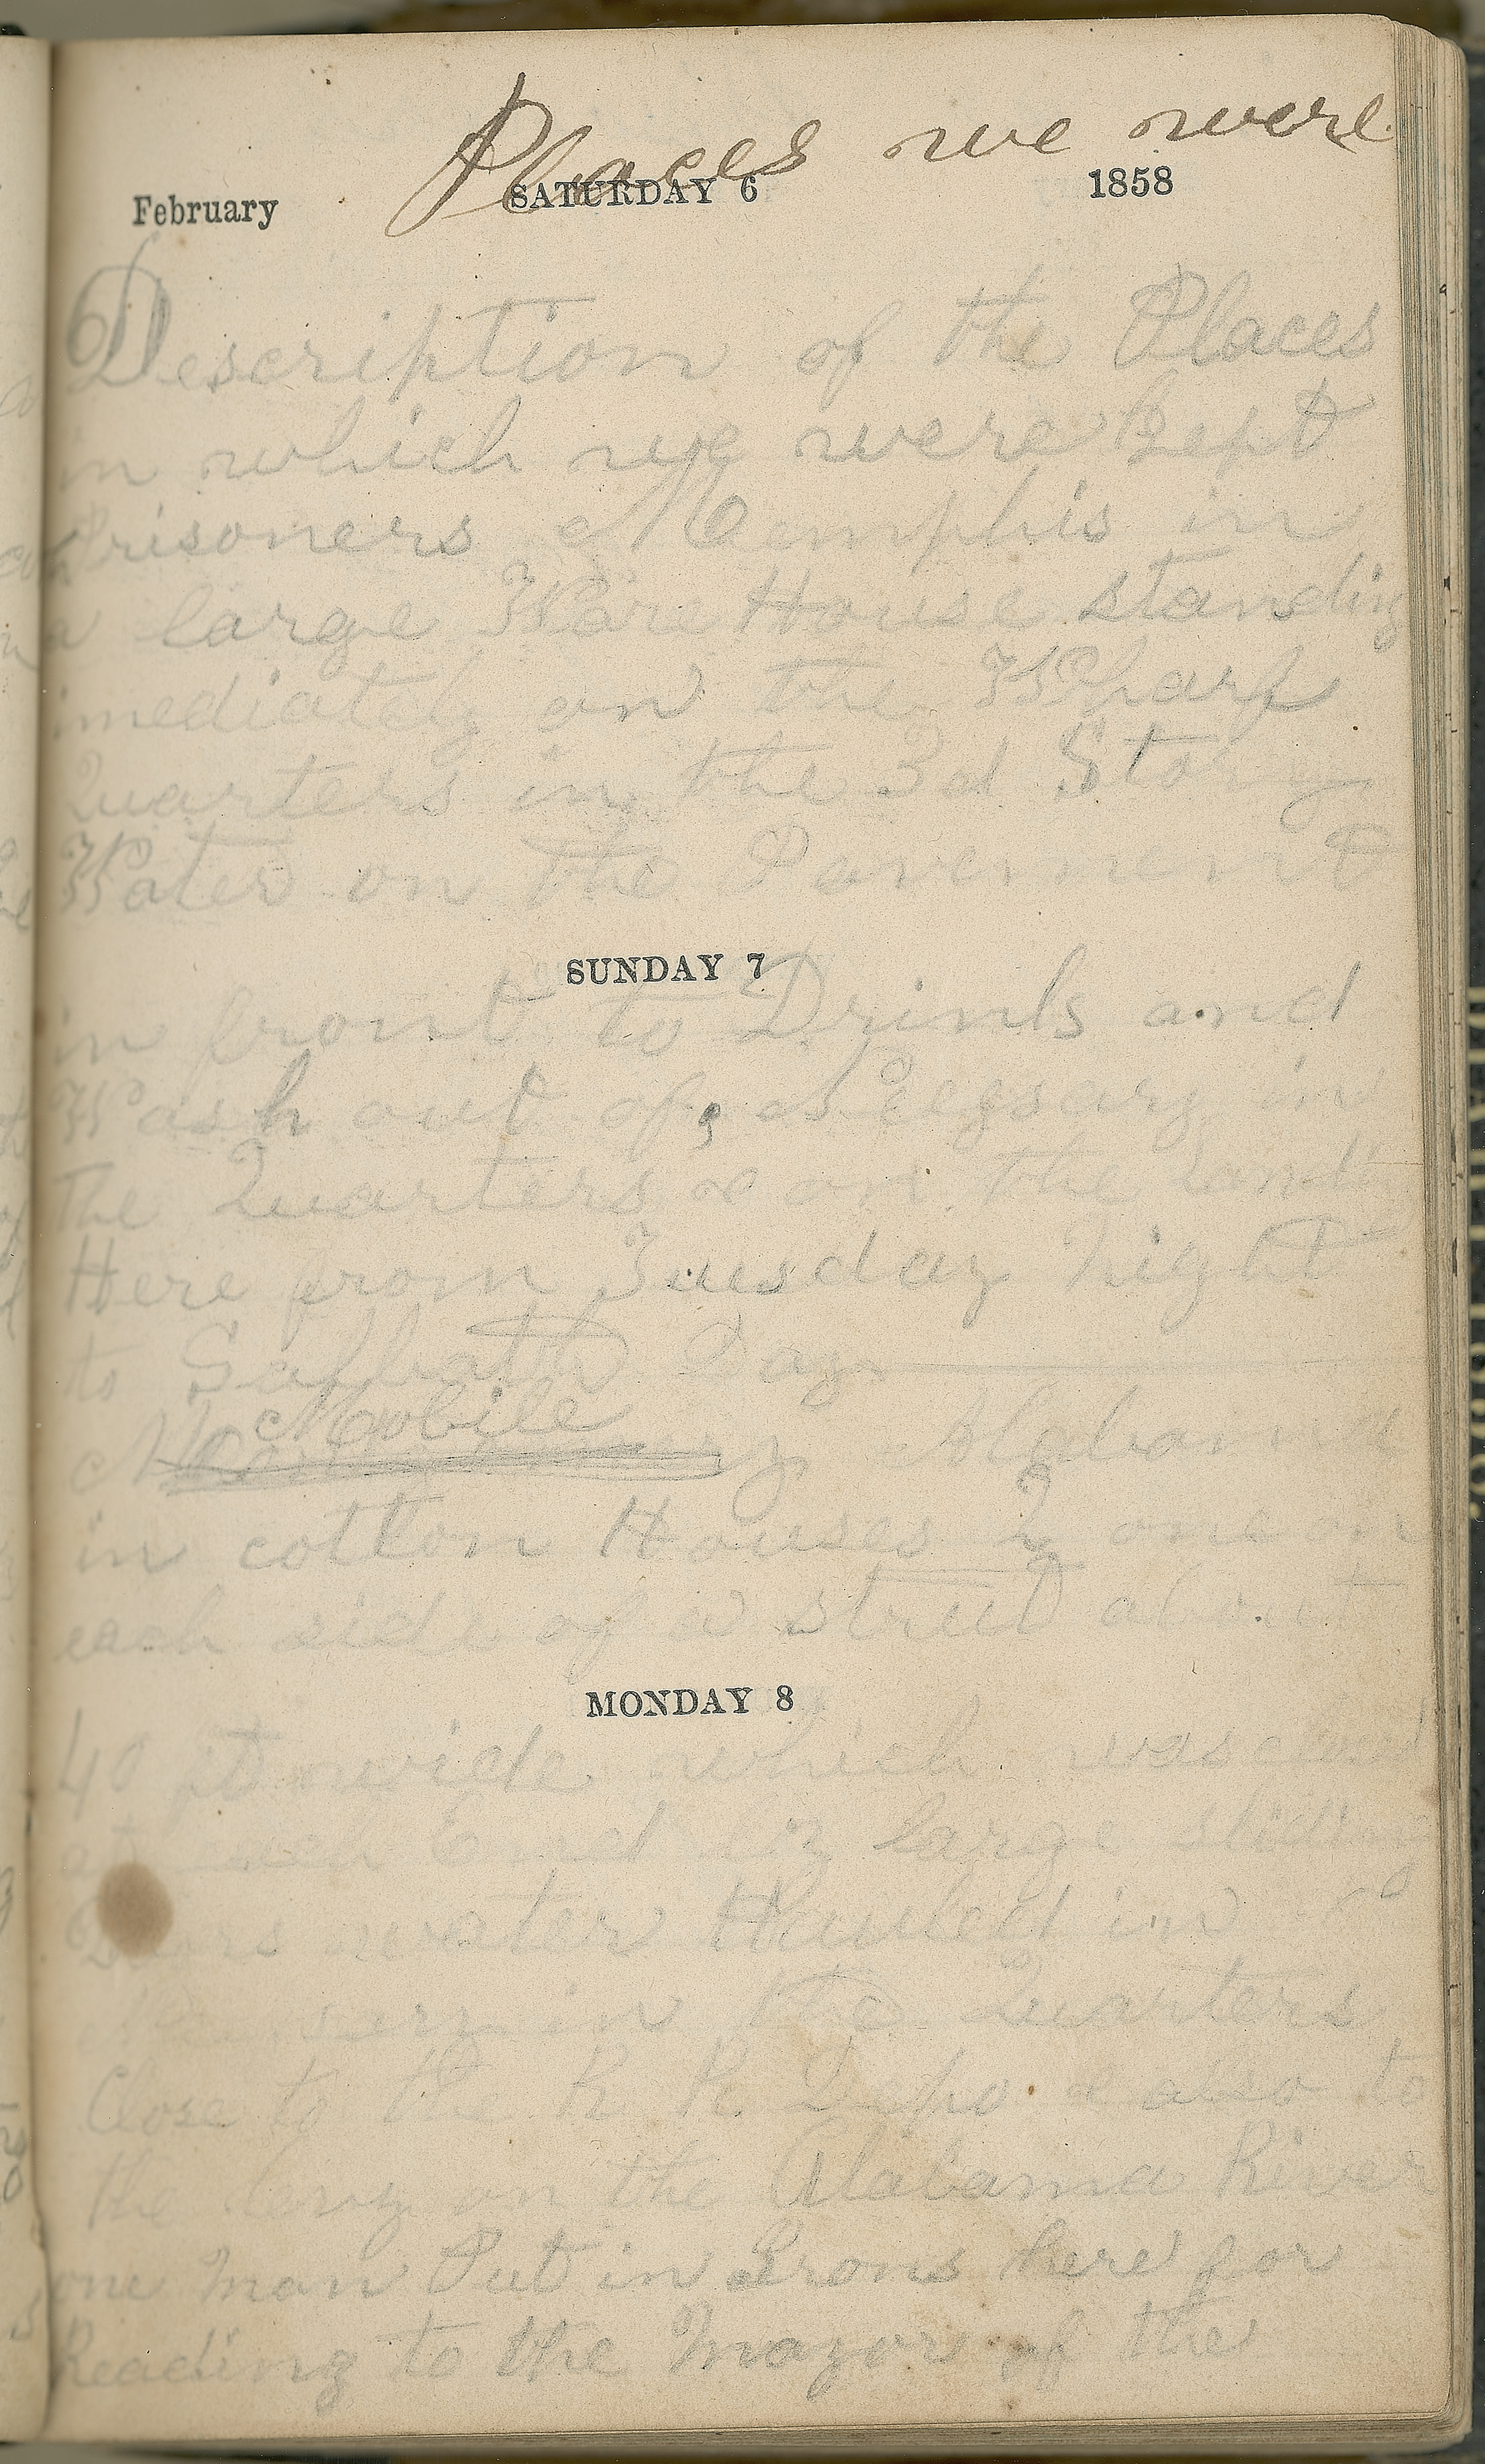 Places we were
February SATURDAY 6 1858
Description of the Places
in which we were kept
Prisoners Memphis in
a large Ware House standing
imediately on the Wharf
Quarters in the 3d Story
Water on the Pavement
SUNDAY 7
in front to Drink and
Wash out of, Necessary in
the Quarters & on the
Here from Tuesday Night
to Sabbath Day
Mobile
Montgomery Alabama
in cotton Houses 2 one on
each side of a street about
MONDAY 8
40 ft wide which was
at each End by large sliding
Doors water Hauled in
in the Quarters
Close to the R R Depo & also to
the on the Alabama River
one Man Put in Irons here for
Reading to the Mayor of the